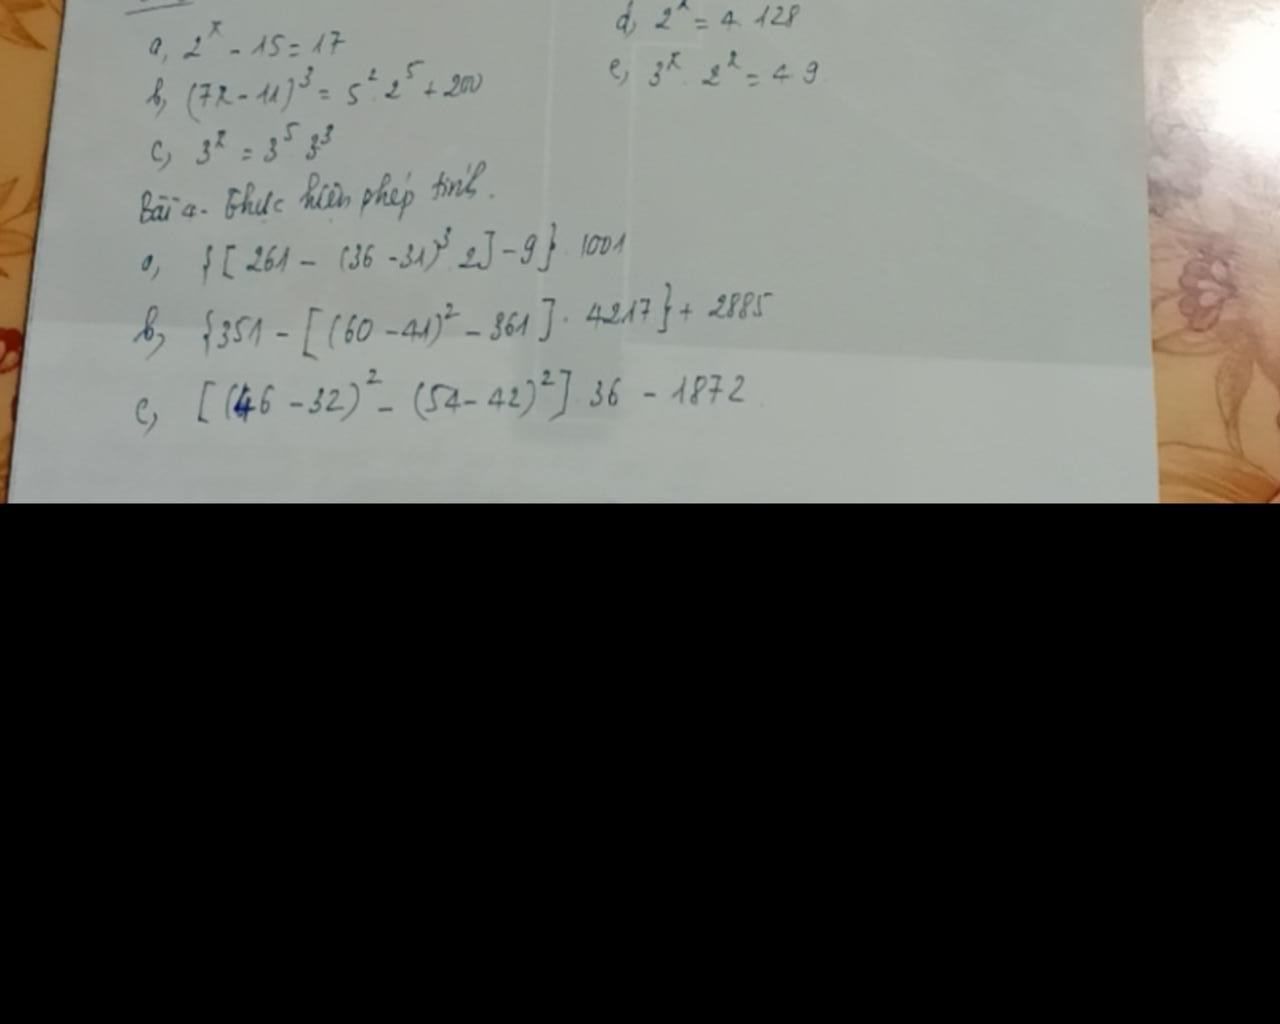 a, 2^x - 15 = 17
d, 2^x = 4. 128
b, (7x - 11)^3 = 5^2. 2^5 + 200
e, 3^x. 2^x = 4 9
c, 3^x = 3^5 3^3
Bài 4. Thực hiện phép tính.
a, {[261 - (36 - 31)^3 2] - 9}. 1001
b, {351 - [(60 - 41)^2 - 361]. 4217} + 2885
c, [(46 - 32)^2 - (54 - 42)^2]. 36 - 1872